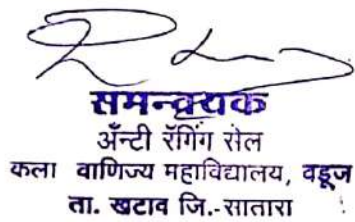 समन्वयक
अँन्टी रॅगिंग सेल
कला वाणिज्य महाविद्यालय, वडूज
ता. खटाव जि.-सातारा